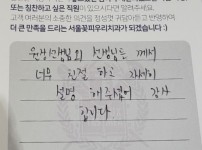 또는 칭찬하고 싶은 직원이 있으시다면 알려주세요.
고객 여러분의 소중한 의견을 정성껏 귀담아듣고 반영하여
더 큰 만족을 드리는 서울꽃피우리치과가 되겠습니다 :)
선생님들 께서
너무 친절 하고 자세히
설명 해주셨어 감사
합니다